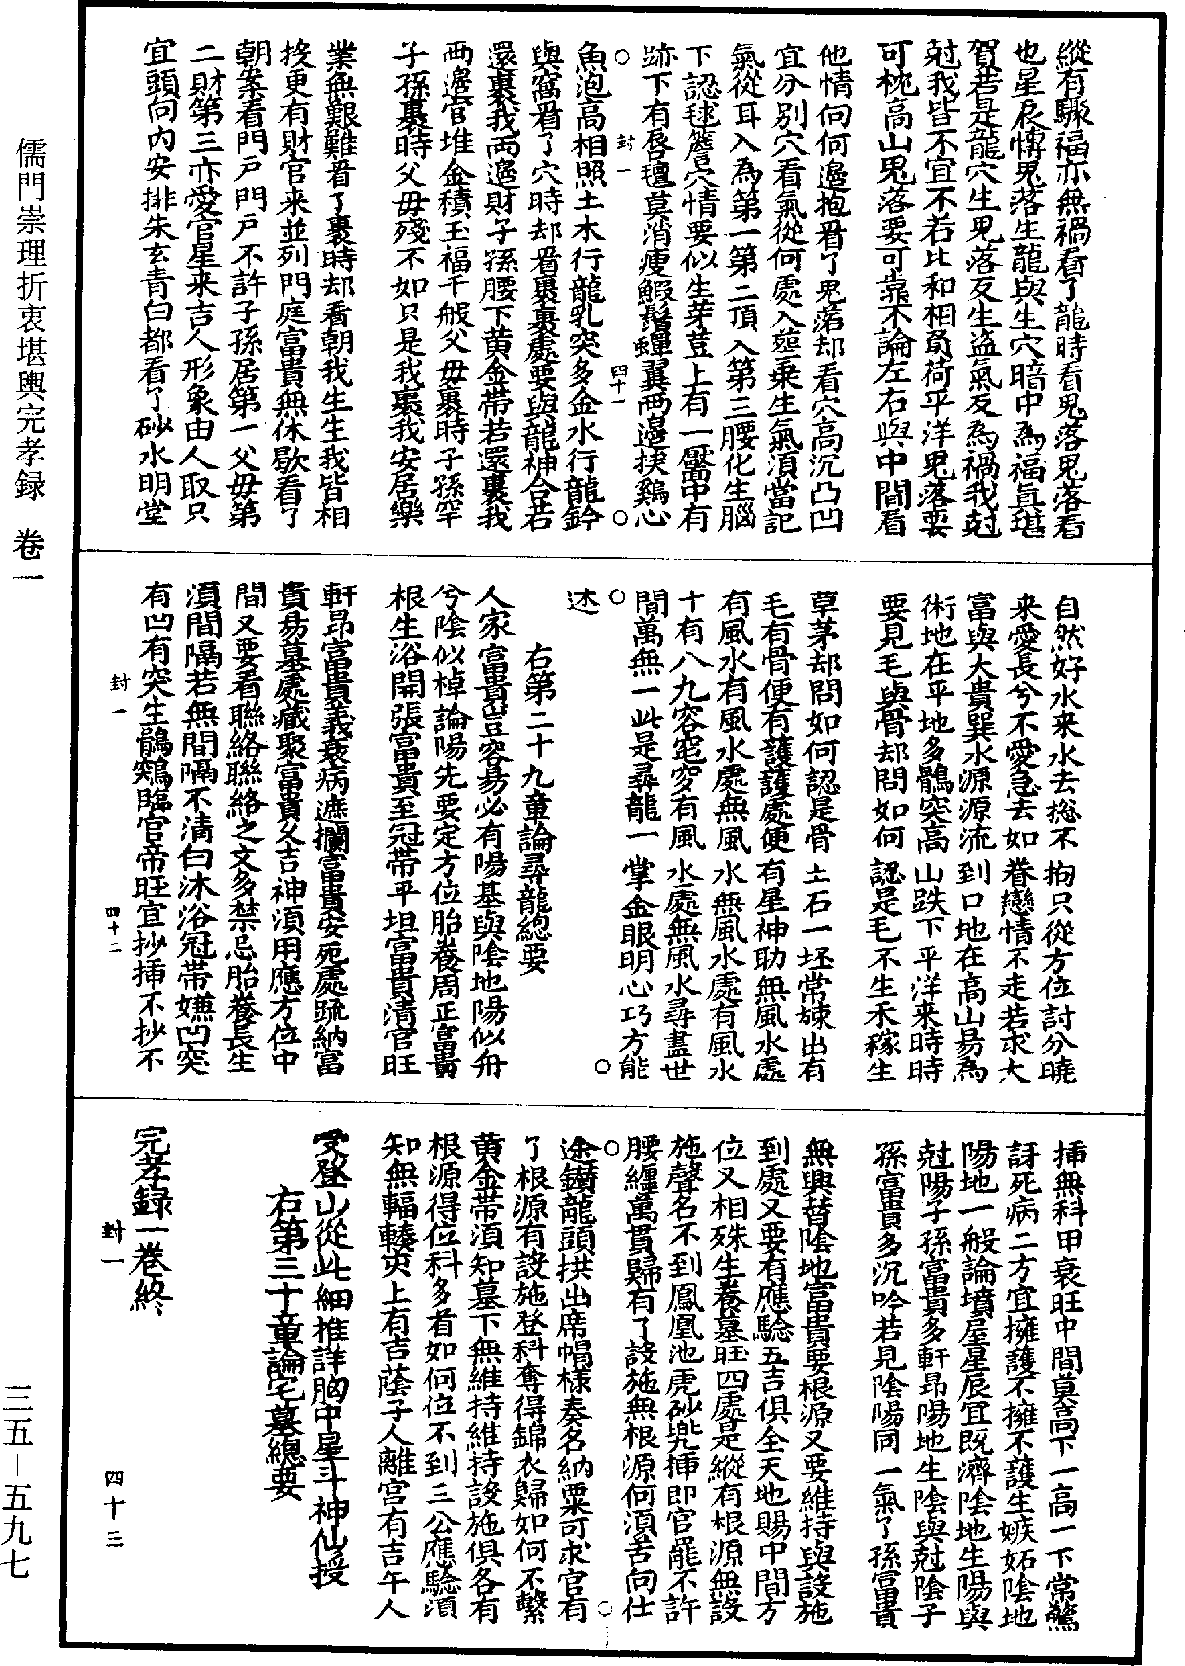 儒門崇理折衷堪輿完孝録　卷一
縱有驟福亦無禍看了龍時看鬼落鬼落看
也星辰愽鬼落生龍與生穴暗中為福真堪
賀若是龍穴生鬼落反生盜氣反為禍我尅
尅我皆不宜不若比和相負荷平洋鬼落要
可枕高山鬼落要可靠不論左右與中間看
他情向何邊抱看了鬼落却看穴高沉凸凹
宜分別穴看氣從何處入塟乗生氣湏當記
氣從耳入為第一第二頂入第三腰化生腦
下認毬簷穴情要似生芽荳上有一靨中有
跡下有唇氊莫消瘦鰕鬚蟬翼两邉挟鷄心
封一
四十一
魚泡高相照土木行龍乳突多金水行龍鈐
與窩看了穴時却看裹裹處要與龍神合若
還裹我两邉財子孫腰下黄金帶若還裹我
两邉官堆金積玉福千般父母裹時子孫罕
子孫裹時父毋殘不如只是我裹我安居樂
業無艱難看了裹時却看朝我生生我皆相
挍更有財官来並列門庭富貴無休歇看了
朝案看門戸門戸不許子孫居第一父毋第
二財第三亦愛官星来吉人形象由人取只
宜頭向内安排朱玄青白都看了砂水明堂
自然好水来水去捴不拘只從方位討分曉
来愛長兮不愛急去如眷戀情不走若求大
富與大貴巽水源源流到口地在高山易為
術地在平地多鶻突高山跌下平洋来時時
要見毛與骨却問如何認是毛不生禾稼生
草茅却問如何認是骨土石一坯常竦出有
毛有骨便有護護處便有星神助無風水處
有風水有風水處無風水無風水處有風水
十有八九容竈穸有風水處無風水尋盡世
間萬無一此是尋龍一掌金眼明心巧方能
述
右第二十九章論尋龍總要
人家富貴豈容易必有陽基與陰地陽似舟
兮陰似棹論陽先要定方位胎養周正富貴
根生浴開張富貴至冠帶平坦富貴清官旺
軒昂富貴義衰病遮攔富貴安死處疏納富
貴易墓處藏聚富貴乂吉神湏用應方位中
間又要看聯絡聯絡之文多禁忌胎養長生
湏間隔若無間隔不清白沐浴冠帶嫌凹突
有凹有突生鶻鵶臨官帝旺宜抄揷不抄不
封一
四十二
揷無科甲衰旺中間莫高下一高一下常驚
訝死病二方宜擁護不擁不護生嫉妬陰地
陽地一般論墳星星辰宜既濟陰地生陽與
尅陽子孫富貴多軒昂陽地生陰與尅陰子
孫富貴多沉吟若見陰陽同一氣了孫富貴
無興替陰地富貴要根源又要維持與設施
到處又要有應驗五吉俱全天地賜中間方
位又相殊生養墓旺四處是縱有根源無設
施聲名不到鳳凰池虎砂兠揷即官罷不許
腰纏萬貫歸有了設施無根源何湏苦向仕
途鑽龍頭拱出席帽樣奏名納粟可求官有
了根源有設施登科奪得錦衣歸如何不繫
黄金帶湏知墓下無維持維持設施俱各有
根源得位科多首如何位不到三公應驗湏
知無輻輳㐫上有吉蔭子人離宮有吉午人
受登山從此細推詳胸中星斗神仙授
右第三十章論宅墓總要
完孝録一卷終
封一
四十三
三五－五九七